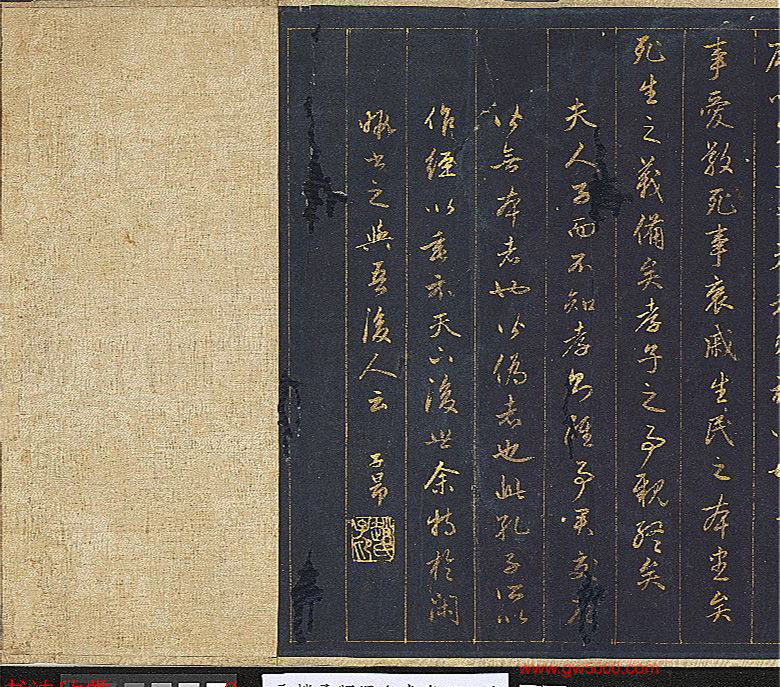 事愛敬死事哀戚生民之本盡矣
死生之義備矣孝子之事親終矣
夫人子而不知孝則雖事君交友
皆無本者也皆偽者也此孔子所以
作經以垂示天下後世余特於閑
暇書之與吾後人云 子昂
趙氏子昂